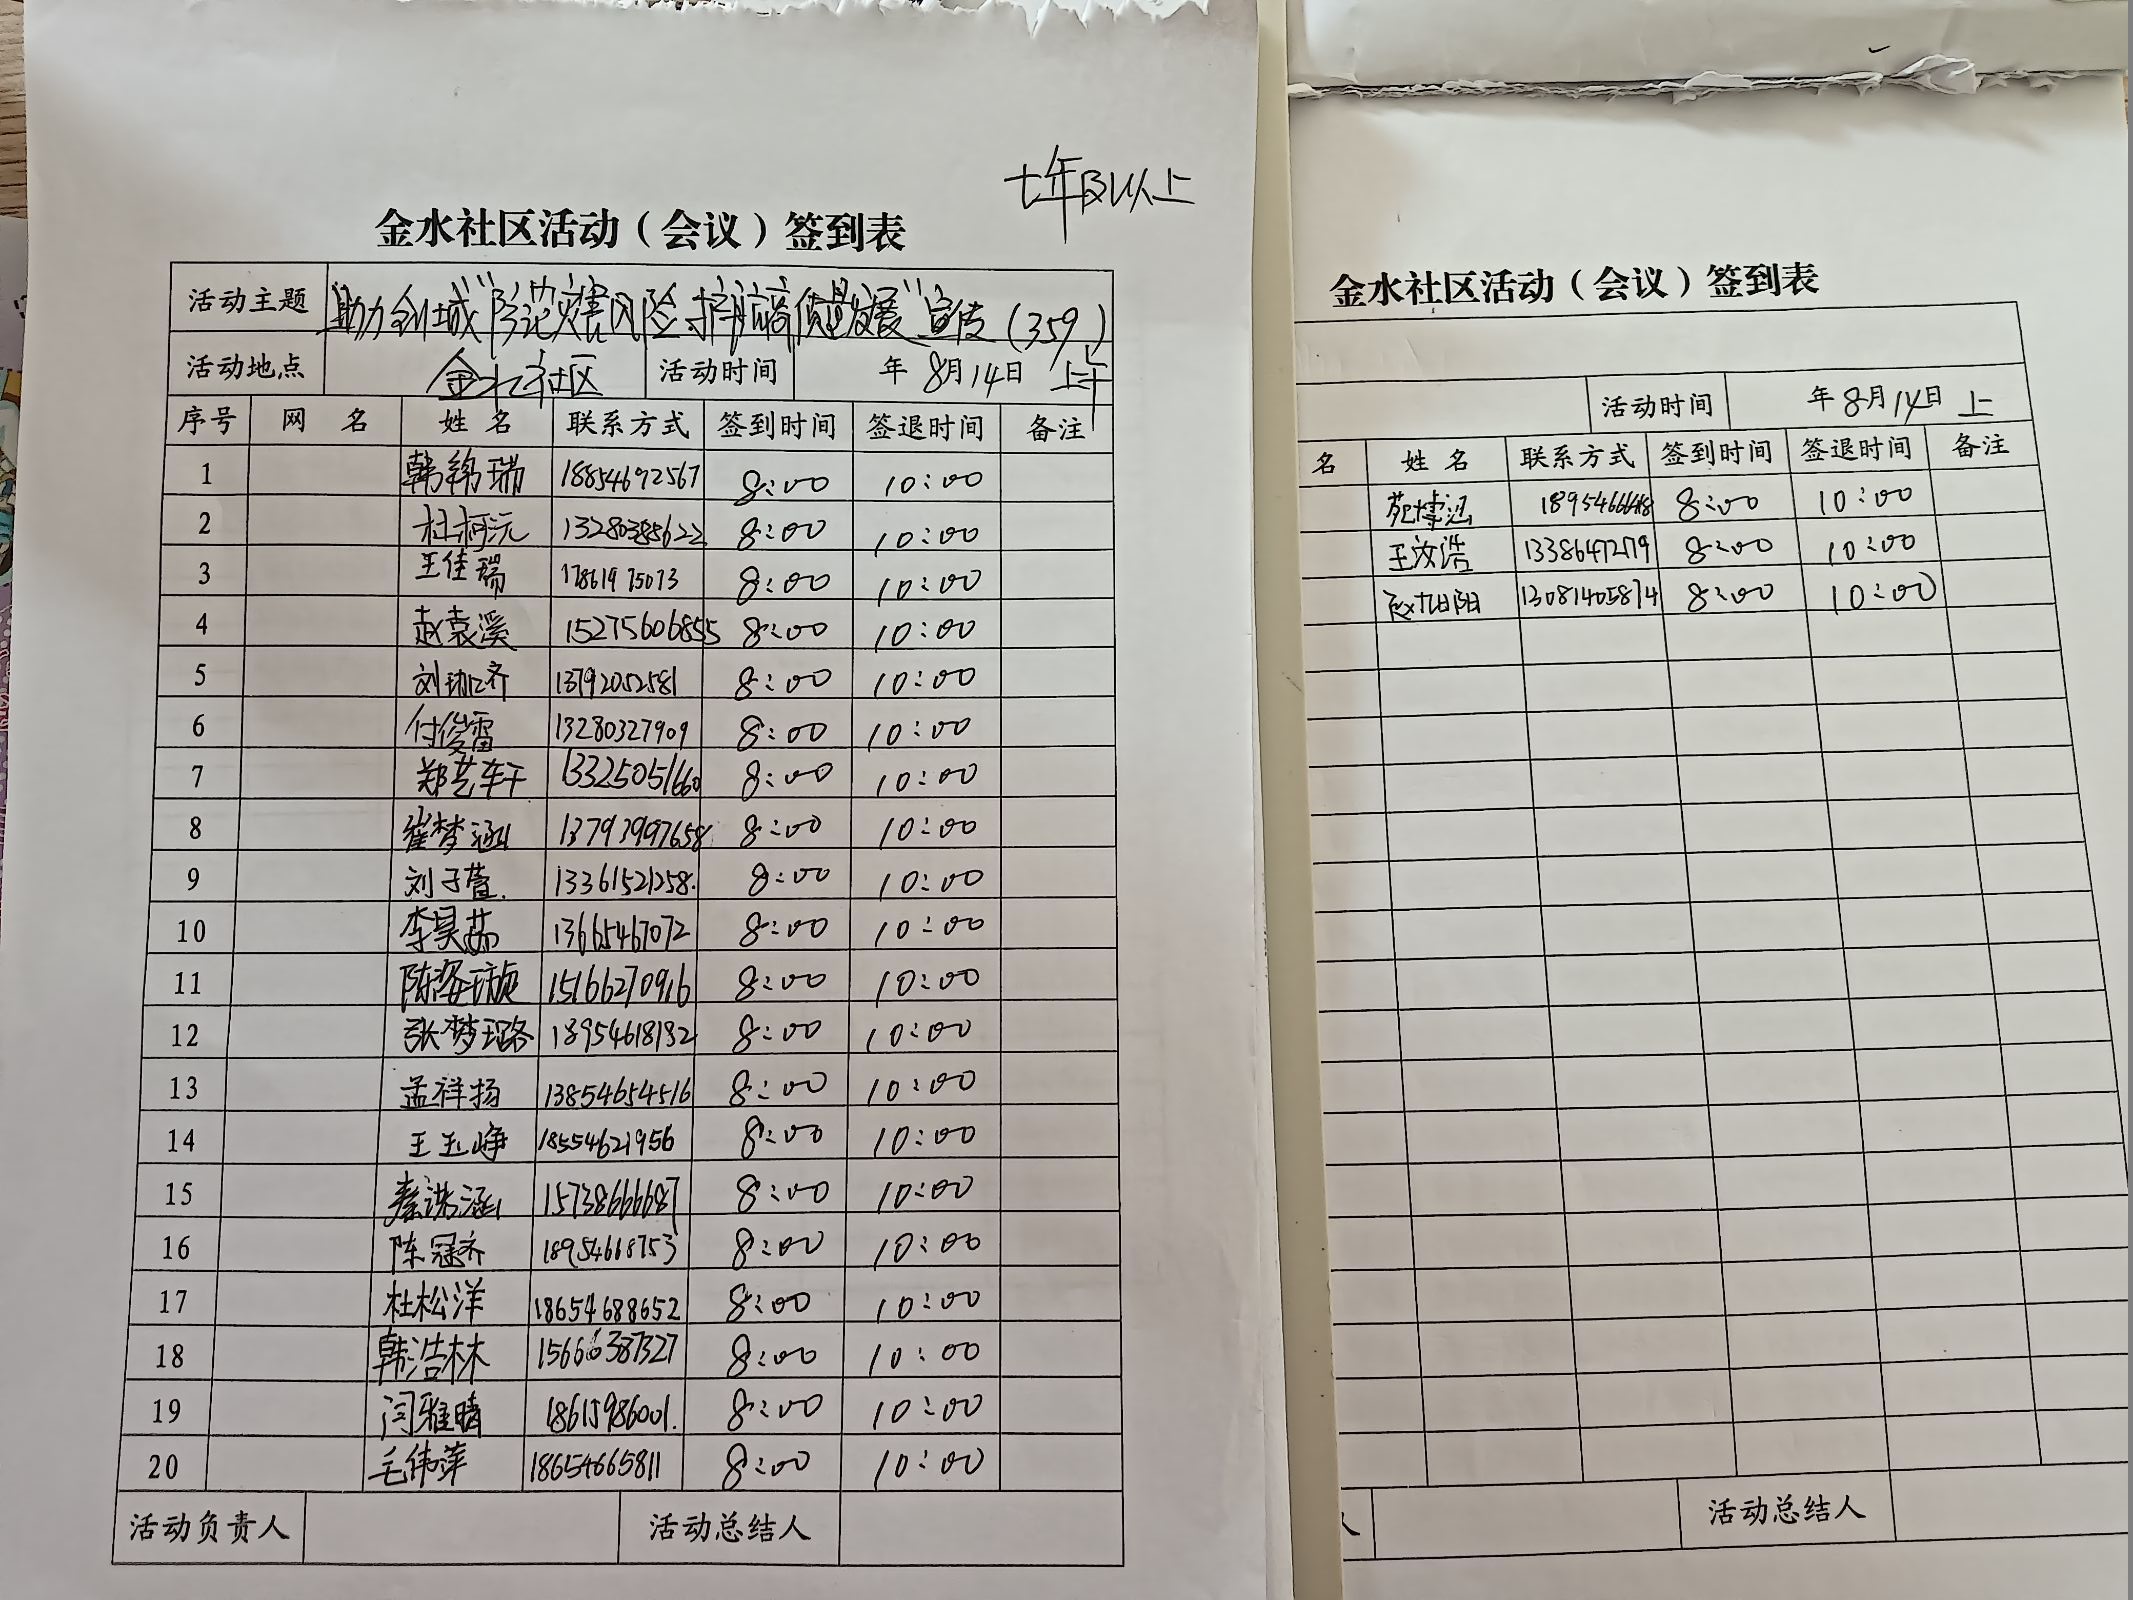 七年级以上
金水社区活动（会议）签到表
活动主题 助力全域"防范灾害风险 护航高质量发展"宣传（359）
活动地点 金水社区 活动时间 年 8月14日 上午
序号 网 名 姓 名 联系方式 签到时间 签退时间 备注
1 18854692567 8:00 10:00
2 杜柯沅 13280385622 8:00 10:00
3 王佳瑞 17861975073 8:00 10:00
4 赵袁溪 15275606855 8:00 10:00
5 13792052581 8:00 10:00
6 付俊雷 13280327909 8:00 10:00
7 郑艺轩 13325051660 8:00 10:00
8 崔梦涵 13793997658 8:00 10:00
9 刘子萱 13361521258 8:00 10:00
10 李昊茹 13665467072 8:00 10:00
11 陈姿璇 15166270916 8:00 10:00
12 张梦璐 18954618132 8:00 10:00
13 孟祥扬 13854654516 8:00 10:00
14 王玉峥 18554621956 8:00 10:00
15 15738666687 8:00 10:00
16 陈冠齐 18954668753 8:00 10:00
17 杜松洋 18654688652 8:00 10:00
18 韩浩林 15666387327 8:00 10:00
19 闫雅晴 18615986001 8:00 10:00
20 毛伟萍 18654665811 8:00 10:00
活动负责人 活动总结人
金水社区活动（会议）签到表
活动时间 年 8月14日 上
名 姓 名 联系方式 签到时间 签退时间 备注
苑博涵 8:00 10:00
王汝浩 8:00 10:00
赵旭阳 13081405874 8:00 10:00
人 活动总结人